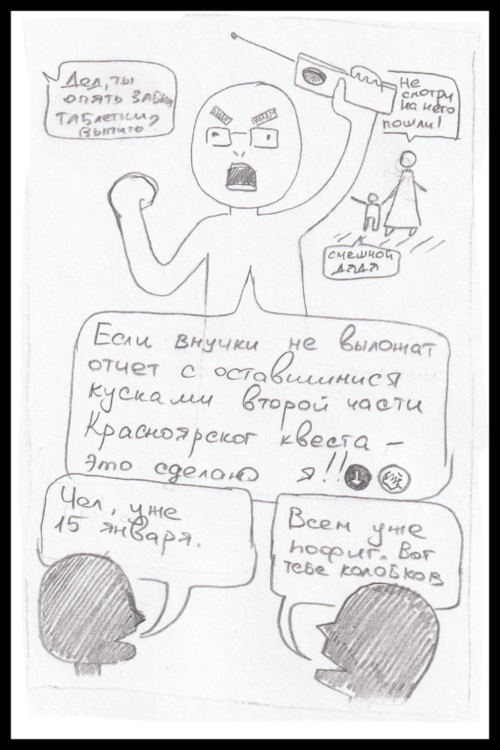 Дед, ты
опять забыл
таблетки
выпить?
не
смотри
на него
пошли!
смешной
дядя
Если внучки не выложат
отчет с оставшимися
кусками второй части
Красноярског квеста –
это сделаю я!!
Чел, уже
15 января.
Всем уже
пофиг. Вот
тебе колобков